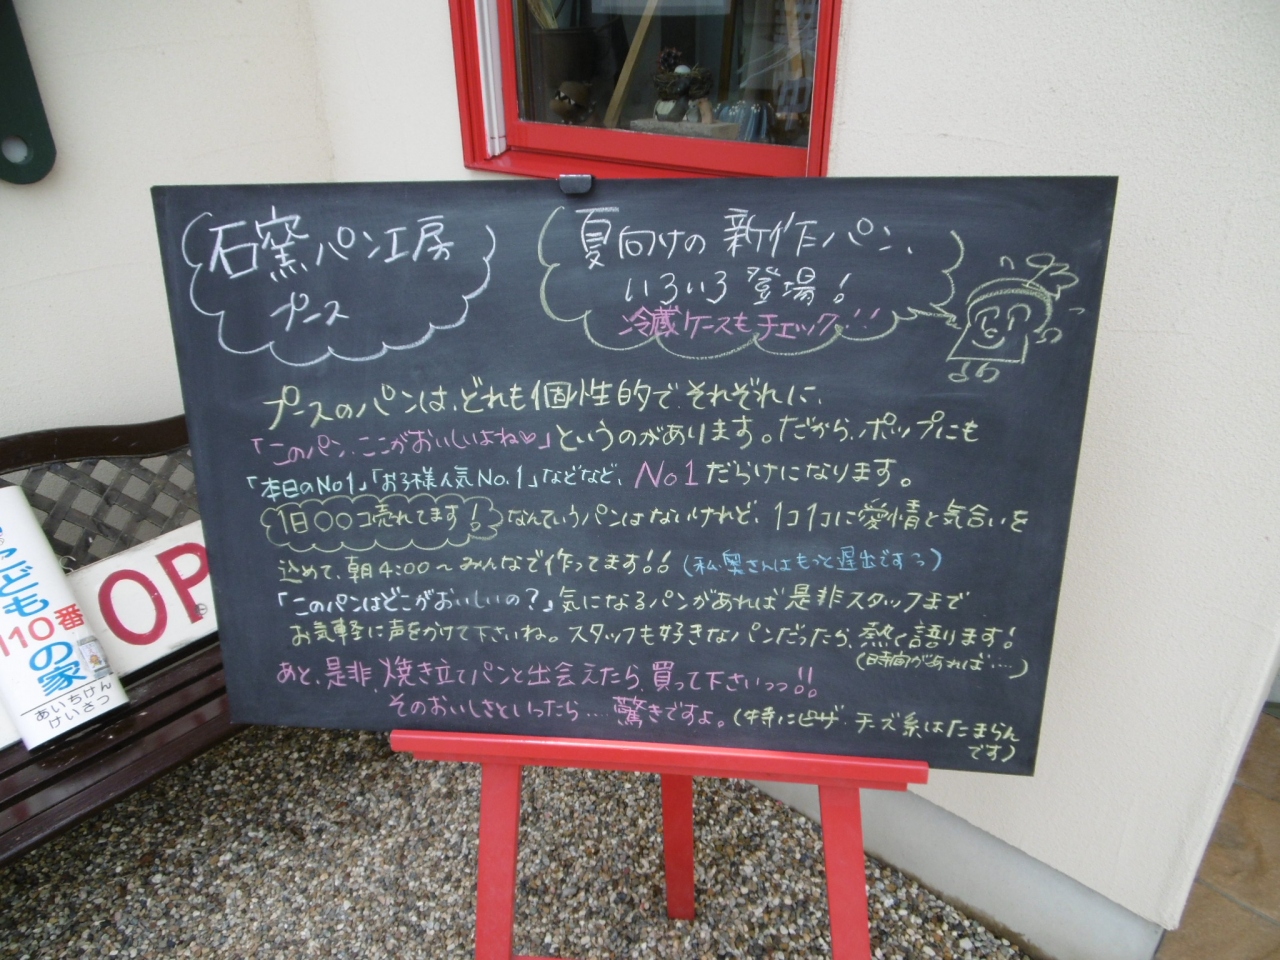 石窯パン工房
プース
夏向けの新作パン、
いろいろ登場!
冷蔵ケースもチェック!!
プースのパンは、どれも個性的で、それぞれに、
「このパン、ここがおいしいよね♡」というのがあります。だから、ポップにも
「本日のNo1」「お子様人気No.1」などなど、No1だらけになります。
1日○○コ売れてます! なんていうパンはないけれど、1コ1コに愛情と気合いを
込めて、朝4:00~みんなで作ってます!!(私、奥さんはもっと遅出ですっ)
「このパンはどこがおいしいの?」気になるパンがあれば是非スタッフまで
お気軽に声をかけて下さいね。スタッフも好きなパンだったら、熱く語ります!
(時間があれば…)
あと、是非、焼き立てパンと出会えたら、買って下さいっっ!!
そのおいしさといったら….驚きですよ。(特にピザ・チーズ系はたまらん
です)
OP
こども
110番
の家
あいちけん
けいさつ